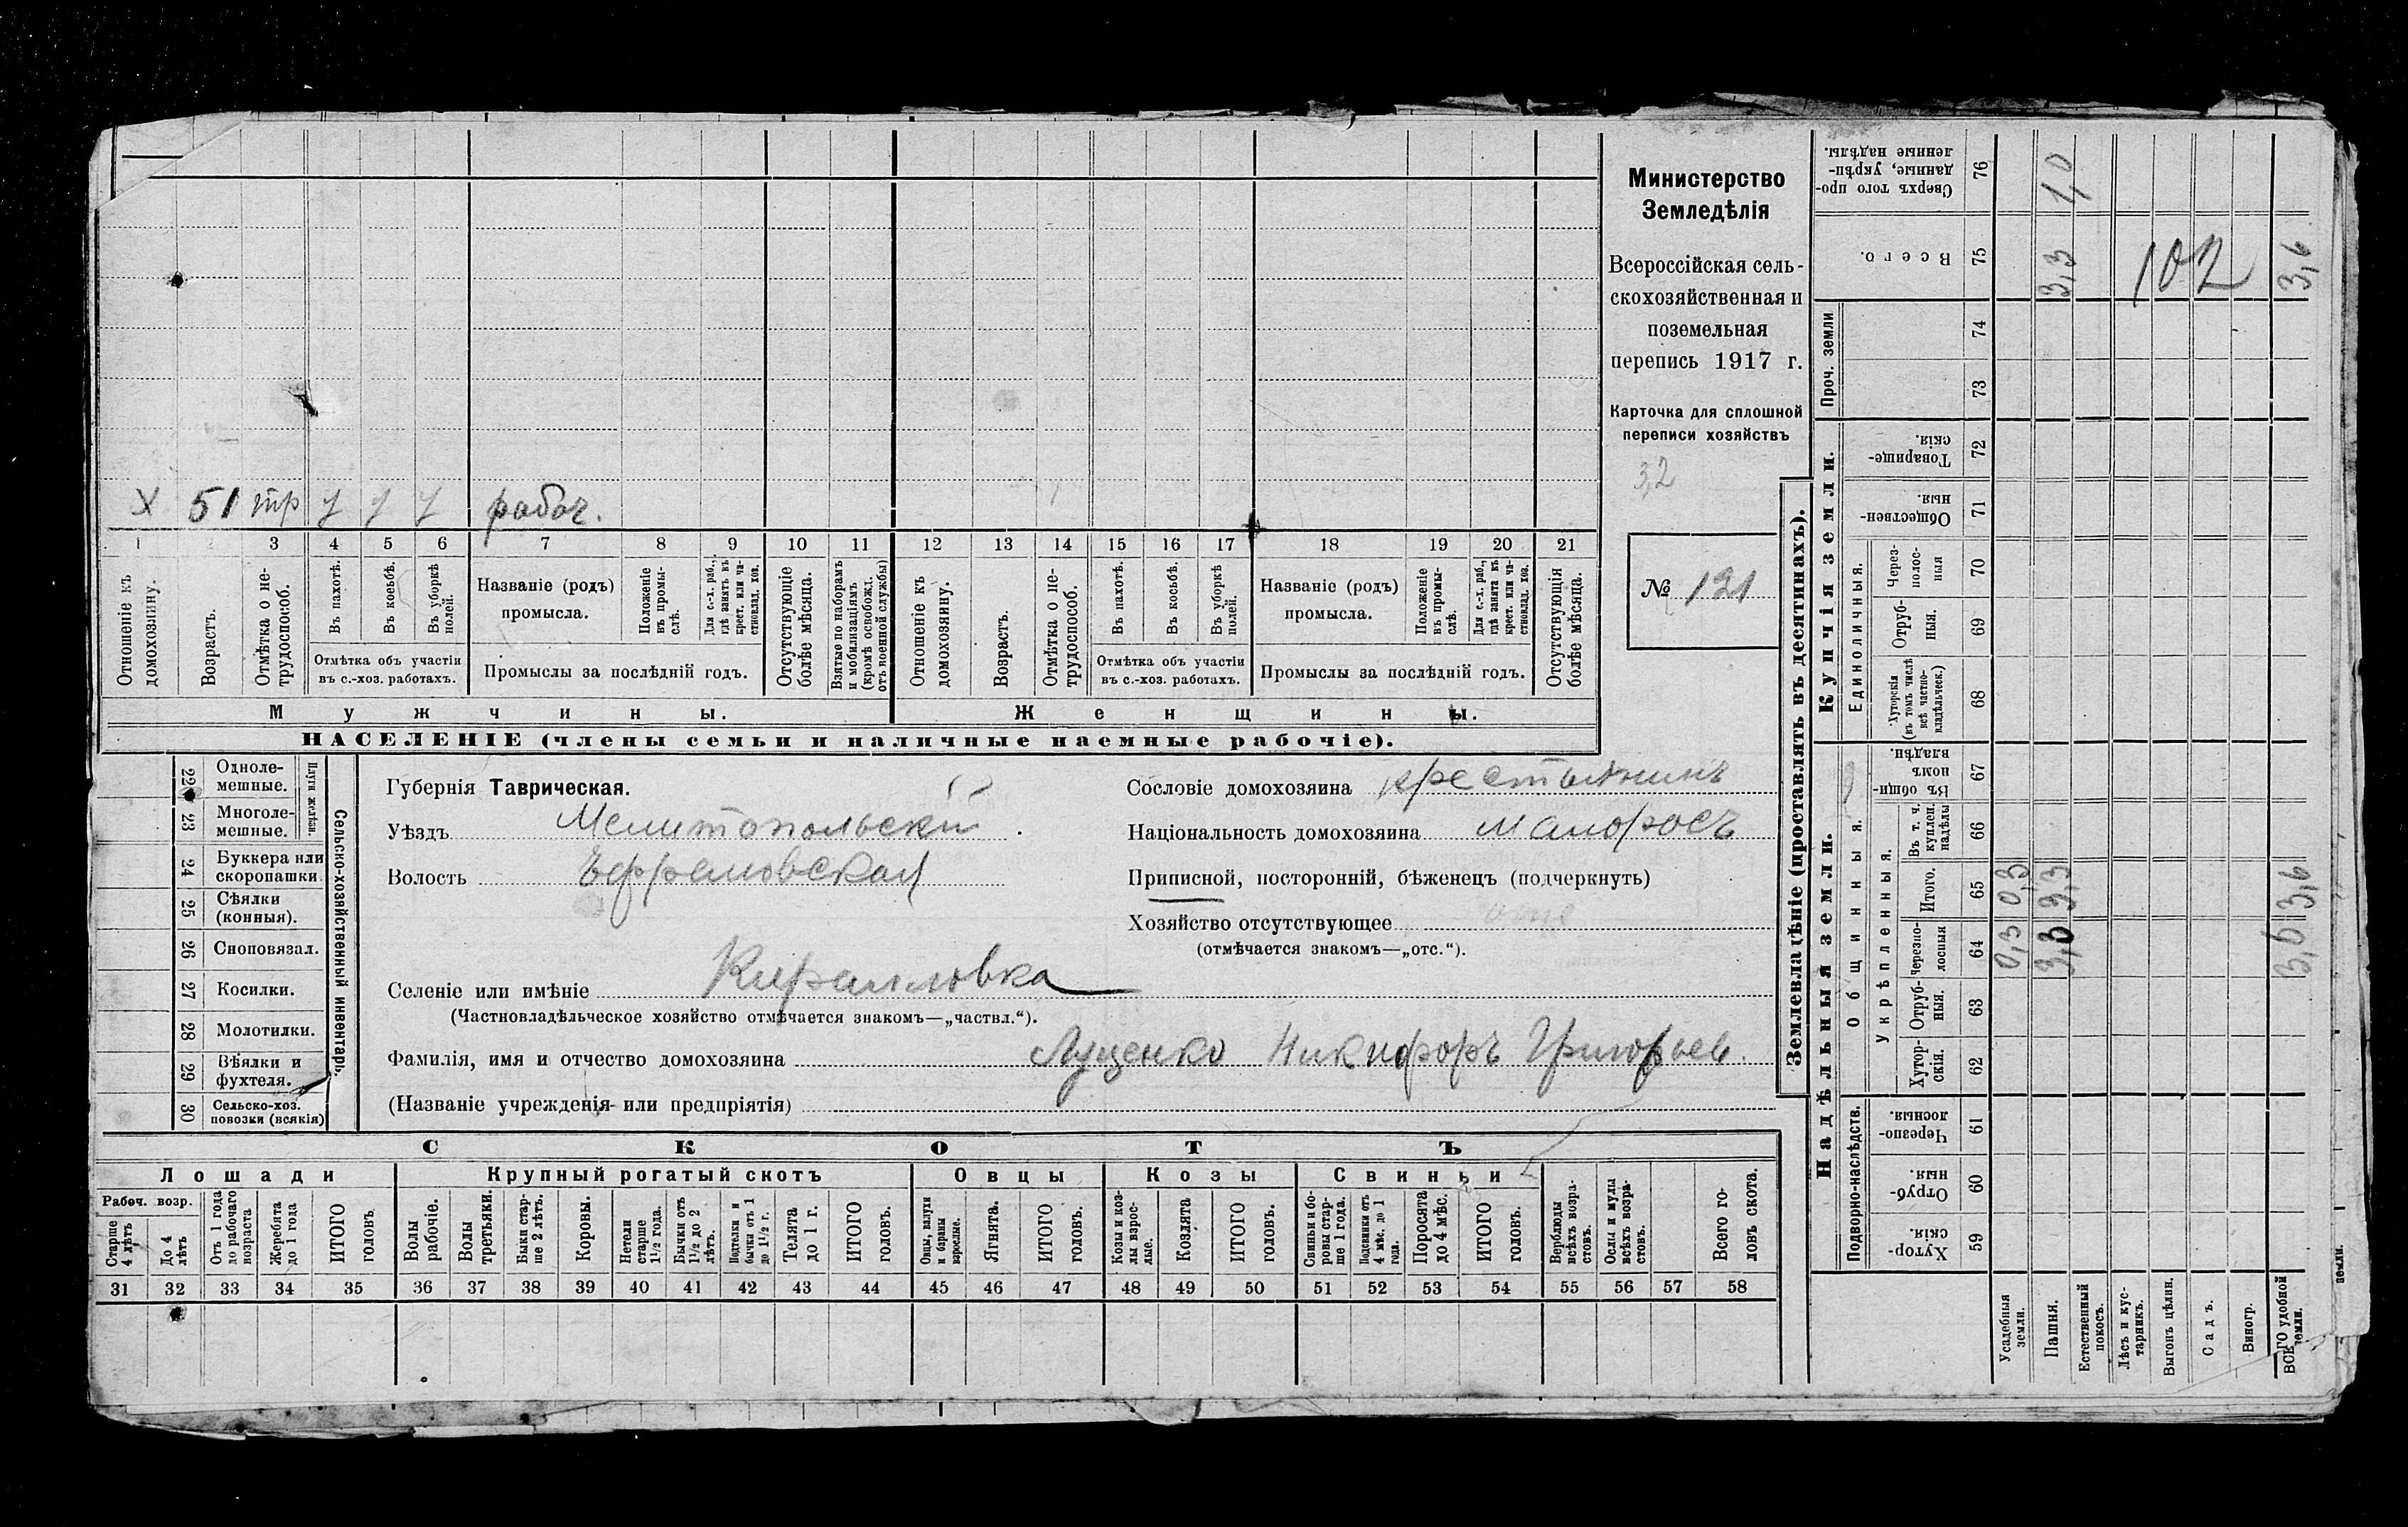 X 51 тр у у у рабоч.
1 2 3 4 5 6 7 8 9 10 11 12 13 14 15 16 17 18 19 20 21
Отношеніе къ домохозяину.
Возрастъ.
Отмѣтка о не-трудоспособ.
Въ пахотѣ.
Въ косьбѣ.
Въ уборкѣ полей.
Отмѣтка объ участіи въ с.-хоз. работахъ.
Названіе (родъ) промысла.
Положеніе въ промы-слѣ.
Для с.-х. раб., гдѣ занятъ въ крест. или ча-стновлад. хоз.
Промыслы за послѣдній годъ.
Отсутствующіе болѣе мѣсяца.
Взятые по наборамъ и мобилизаціямъ (кромѣ освобожд. отъ военной службы)
Отношеніе къ домохозяину.
Возрастъ.
Отмѣтка о не-трудоспособ.
Въ пахотѣ.
Въ косьбѣ.
Въ уборкѣ полей.
Отмѣтка объ участіи въ с.-хоз. работахъ.
Названіе (родъ) промысла.
Положеніе въ промы-слѣ.
Для с.-х. раб., гдѣ занята въ крест. или ча-стновлад. хоз.
Промыслы за послѣдній годъ.
Отсутствующія болѣе мѣсяца.
Мужчины. Женщины.
НАСЕЛЕНІЕ (члены семьи и наличные наемные рабочіе).
Министерство
Земледѣлія
Всероссійская сель-
скохозяйственная и
поземельная
перепись 1917 г.
Карточка для сплошной
переписи хозяйствъ
3,2
№ 121
22 Одноле-мешные.
23 Многоле-мешные.
Плуги желѣзн.
24 Буккера или скоропашки
25 Сѣялки (конныя).
26 Сноповязал.
27 Косилки.
28 Молотилки.
29 Вѣялки и фухтеля.
30 Сельско-хоз. повозки (всякія)
Сельско-хозяйственный инвентарь.
Губернія Таврическая.
Уѣздъ Мелитопольскій
Волость Ефремовская
Сословіе домохозяина крестьянинъ
Національность домохозяина малоросъ
Приписной, посторонній, бѣженецъ (подчеркнуть)
Хозяйство отсутствующее
(отмѣчается знакомъ—„отс.“).
Селеніе или имѣніе Кирилловка
(Частновладѣльческое хозяйство отмѣчается знакомъ—„частвл.“).
Фамилія, имя и отчество домохозяина Луценко Никифоръ Григорьев.
(Названіе учрежденія или предпріятія)
СКОТЪ
Лошади Крупный рогатый скотъ Овцы Козы Свиньи
Рабоч. возр.
Старше 4 лѣтъ
До 4 лѣтъ
Отъ 1 года до рабочаго возраста
Жеребята до 1 года
ИТОГО головъ
Волы рабочіе.
Волы третьяки.
Быки стар-ше 2 лѣтъ.
Коровы.
Нетели старше 1 1/2 года.
Бычки отъ 1 1/2 до 2 лѣтъ.
Подтелки и бычки отъ 1 до 1 1/2 г.
Телята до 1 г.
ИТОГО головъ.
Овцы, валухи и бараны взрослые.
Ягнята.
ИТОГО головъ.
Козы и коз-лы взрос-лые.
Козлята
ИТОГО головъ.
Свиньи и бо-ровы стар-ше 1 года.
Подсвинки отъ 4 мѣс. до 1 года.
Поросята до 4 мѣс.
ИТОГО головъ.
Верблюды всѣхъ возра-стовъ.
Ослы и мулы всѣхъ возра-стовъ.
Всего го-ловъ скота.
31 32 33 34 35 36 37 38 39 40 41 42 43 44 45 46 47 48 49 50 51 52 53 54 55 56 57 58
Землевладѣніе (проставлять въ десятинахъ).
Надѣльныя земли. Купчія земли.
Проч. земли
Подворно-наслѣдств.
Общинныя.
Укрѣпленныя.
Единоличныя.
Сверхъ того про-данные, укрѣп-ленные надѣлы. 76 1,0
Всего. 75 3,3 102 3,6
74
73
Товарище-скія. 72
Обществен-ныя. 71
Через-полос-ныя 70
Отруб-ныя. 69
Хуторскія (въ томъ числѣ всѣ частно-владѣльческ.) 68
Въ общин-номъ владѣн. 67
Въ т. ч. куплен. надѣлы 66
Итого. 65 0,3 3,3 3,6
Черезпо-лосныя 64 0,3 3,3 3,6
Отруб-ныя. 63
Хутор-скія. 62
Черезпо-лосныя. 61
Отруб-ныя. 60
Хутор-скія. 59
Усадебныя земли.
Пашня.
Естественный покосъ.
Лѣсъ и кус-тарникъ.
Выгонъ цѣлин.
Садъ.
Виногр.
ВСЕГО удобной земли.
земли.